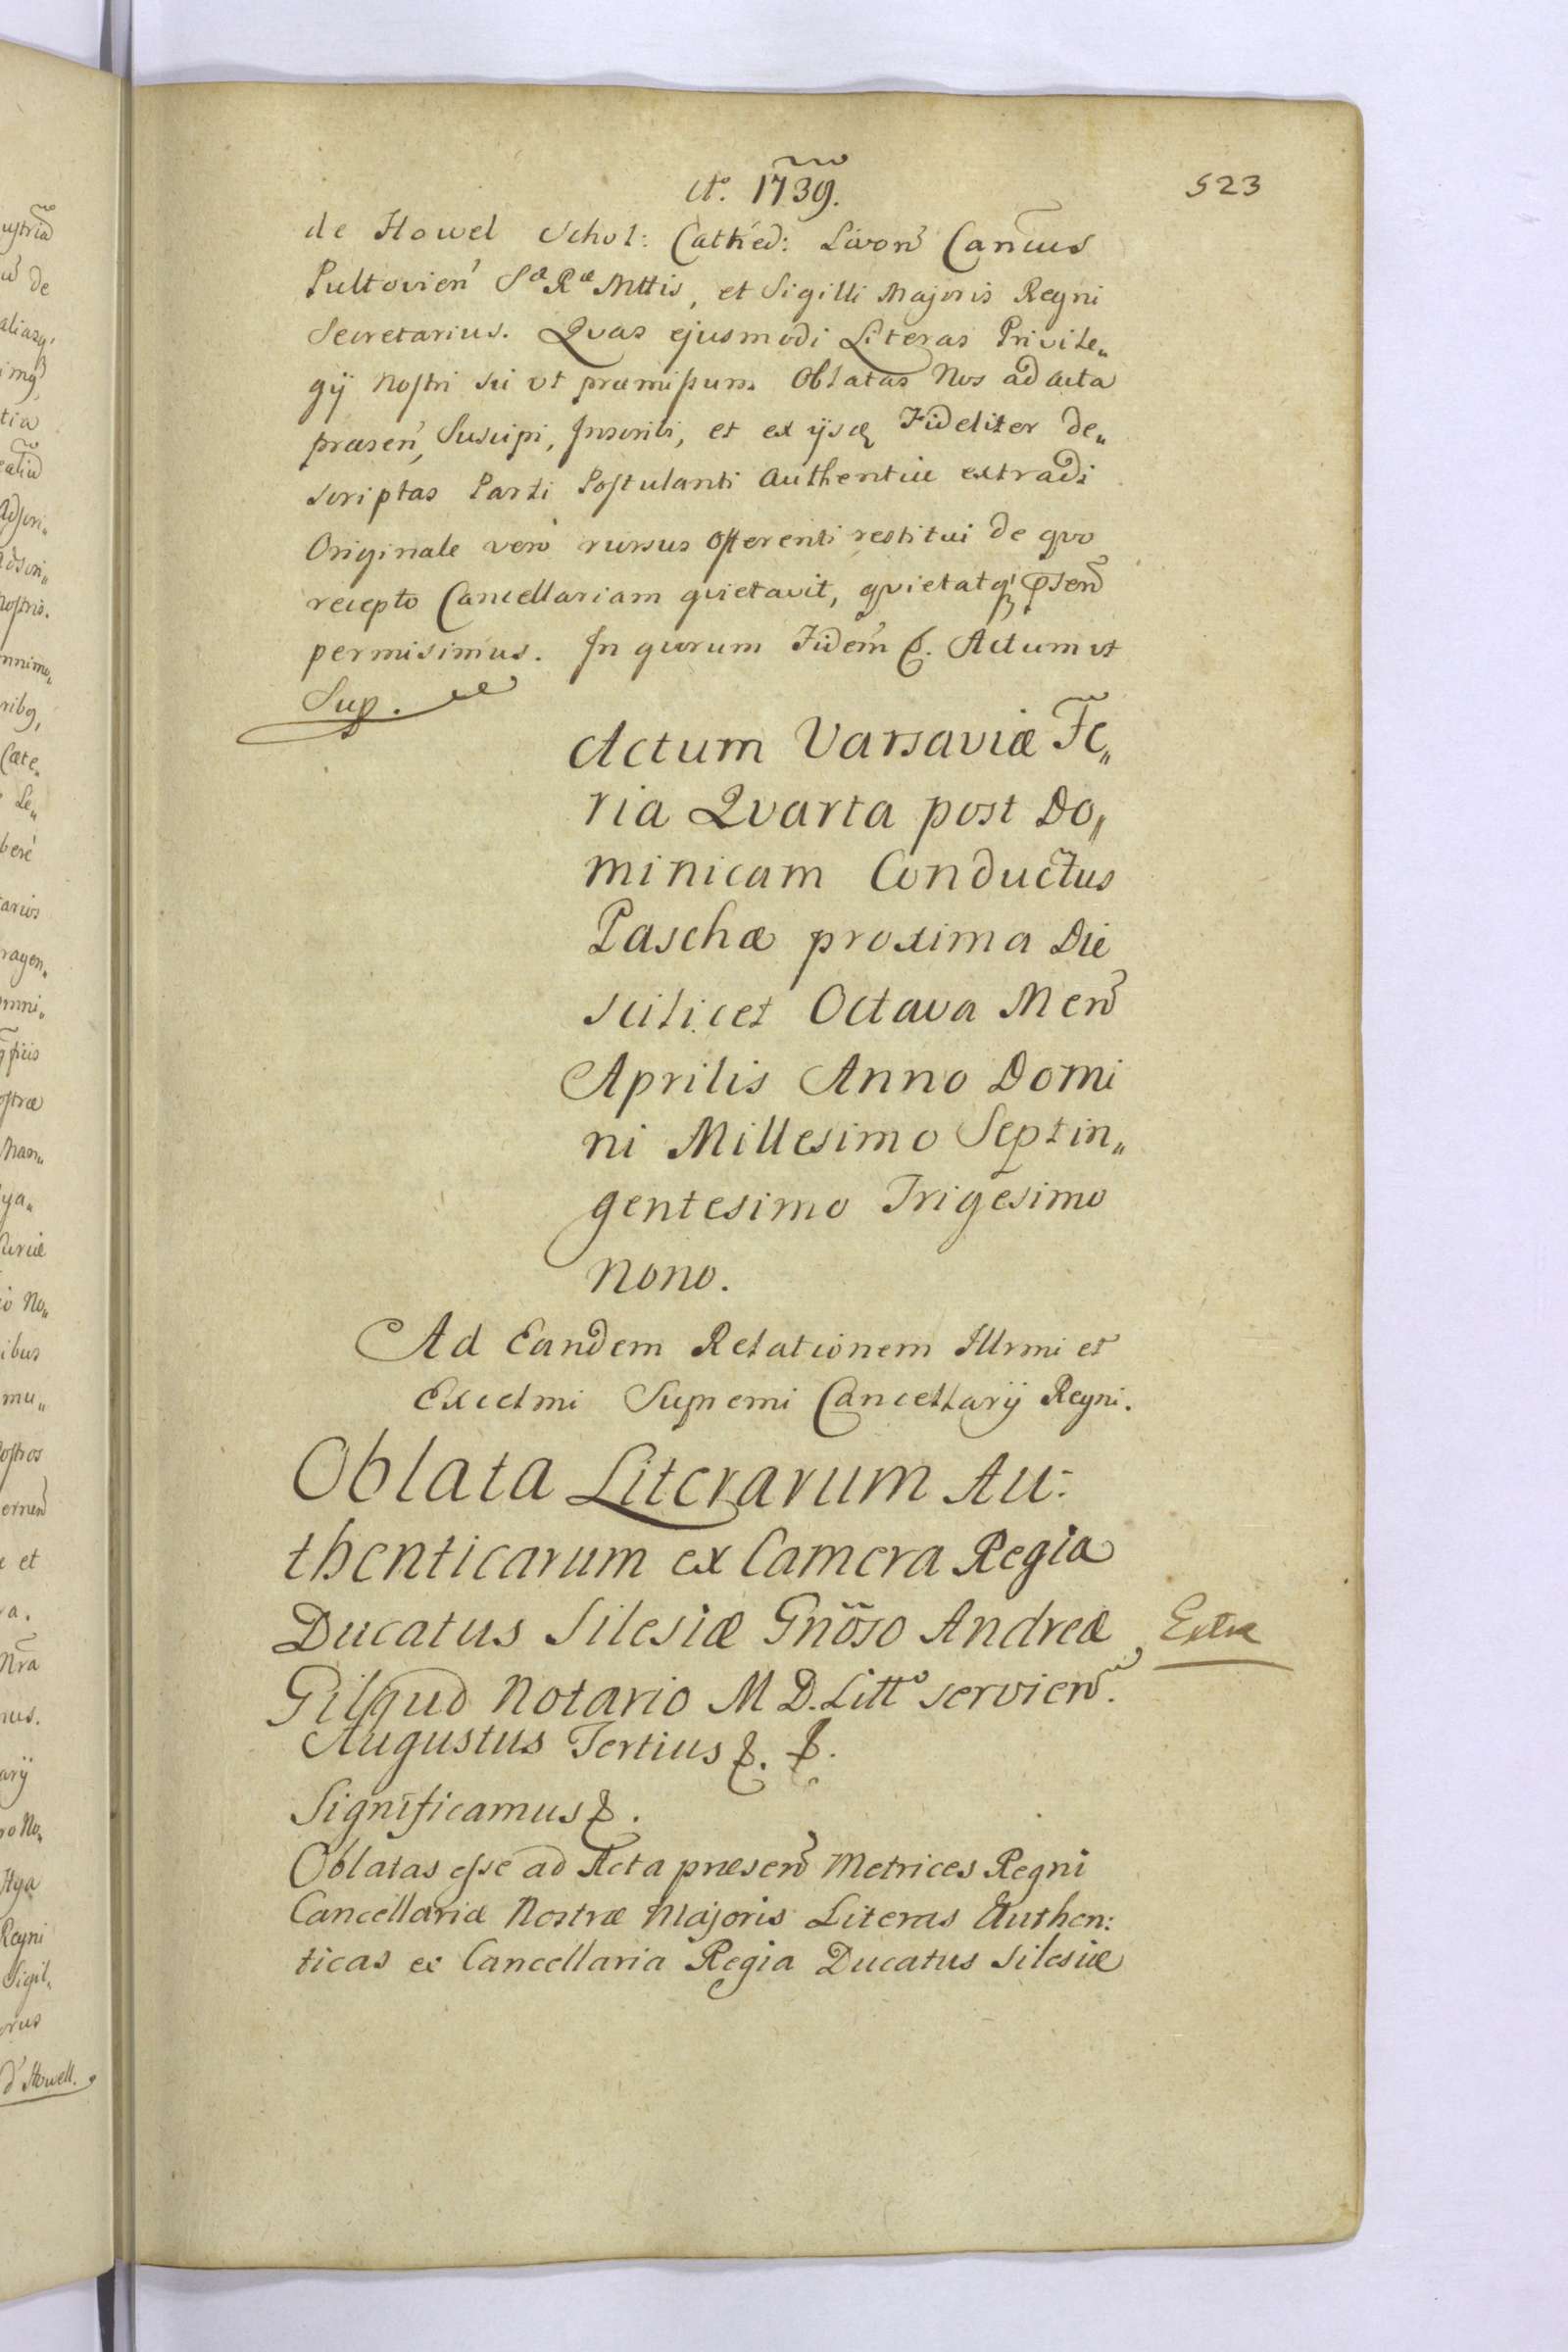 Aº. 1739.
523
de Howel Schol: Cathed: Livoñ Canc̃us
Pultovien̄ Sᵃᵉ Rᵃᵉ Mttis, et Sigilli Majoris Regni
Secretarius. Qvas ejusmodi Literas Privile„
gÿ Noſtri sic vt præmiſsum Oblatas Nos ad acta
præseñ, Suscipi, Inscribi, et ex ÿsdẽ Fideliter de„
scriptas Parti Poſtulanti Authentice extradi
Originale verò rursus Offerenti restitui de qvo
recepto Cancellariam qvietavit, qvietatq́ꝫ p̄señ
permisimus. In qvorum Fidem̃ &. Actum vt
Sup.
Actum Varsaviæ Fe„
ria Qvarta post Do„
minicam Conductus
Paschæ proxima Die
scilicet Octava Meñ
Aprilis Anno Domi
ni Millesimo Septin„
gentesimo Trigesimo
nono.
Ad Eandem Relationem Illrmi et
Excelmi Supremi Cancellarÿ Regni.
Oblata Literarum Au:
thenticarum ex Camera Regia
Ducatus Silesiæ Gñoso Andreæ
Gilqud Notario M D. Littº servieñ.
Augustus Tertius &. &.
Significamus &.
Oblatas eſse ad Acta præseñ Metrices Regni
Cancellariæ Nostræ Majoris Literas Authen:
ticas ex Cancellaria Regia Ducatus Silesiæ